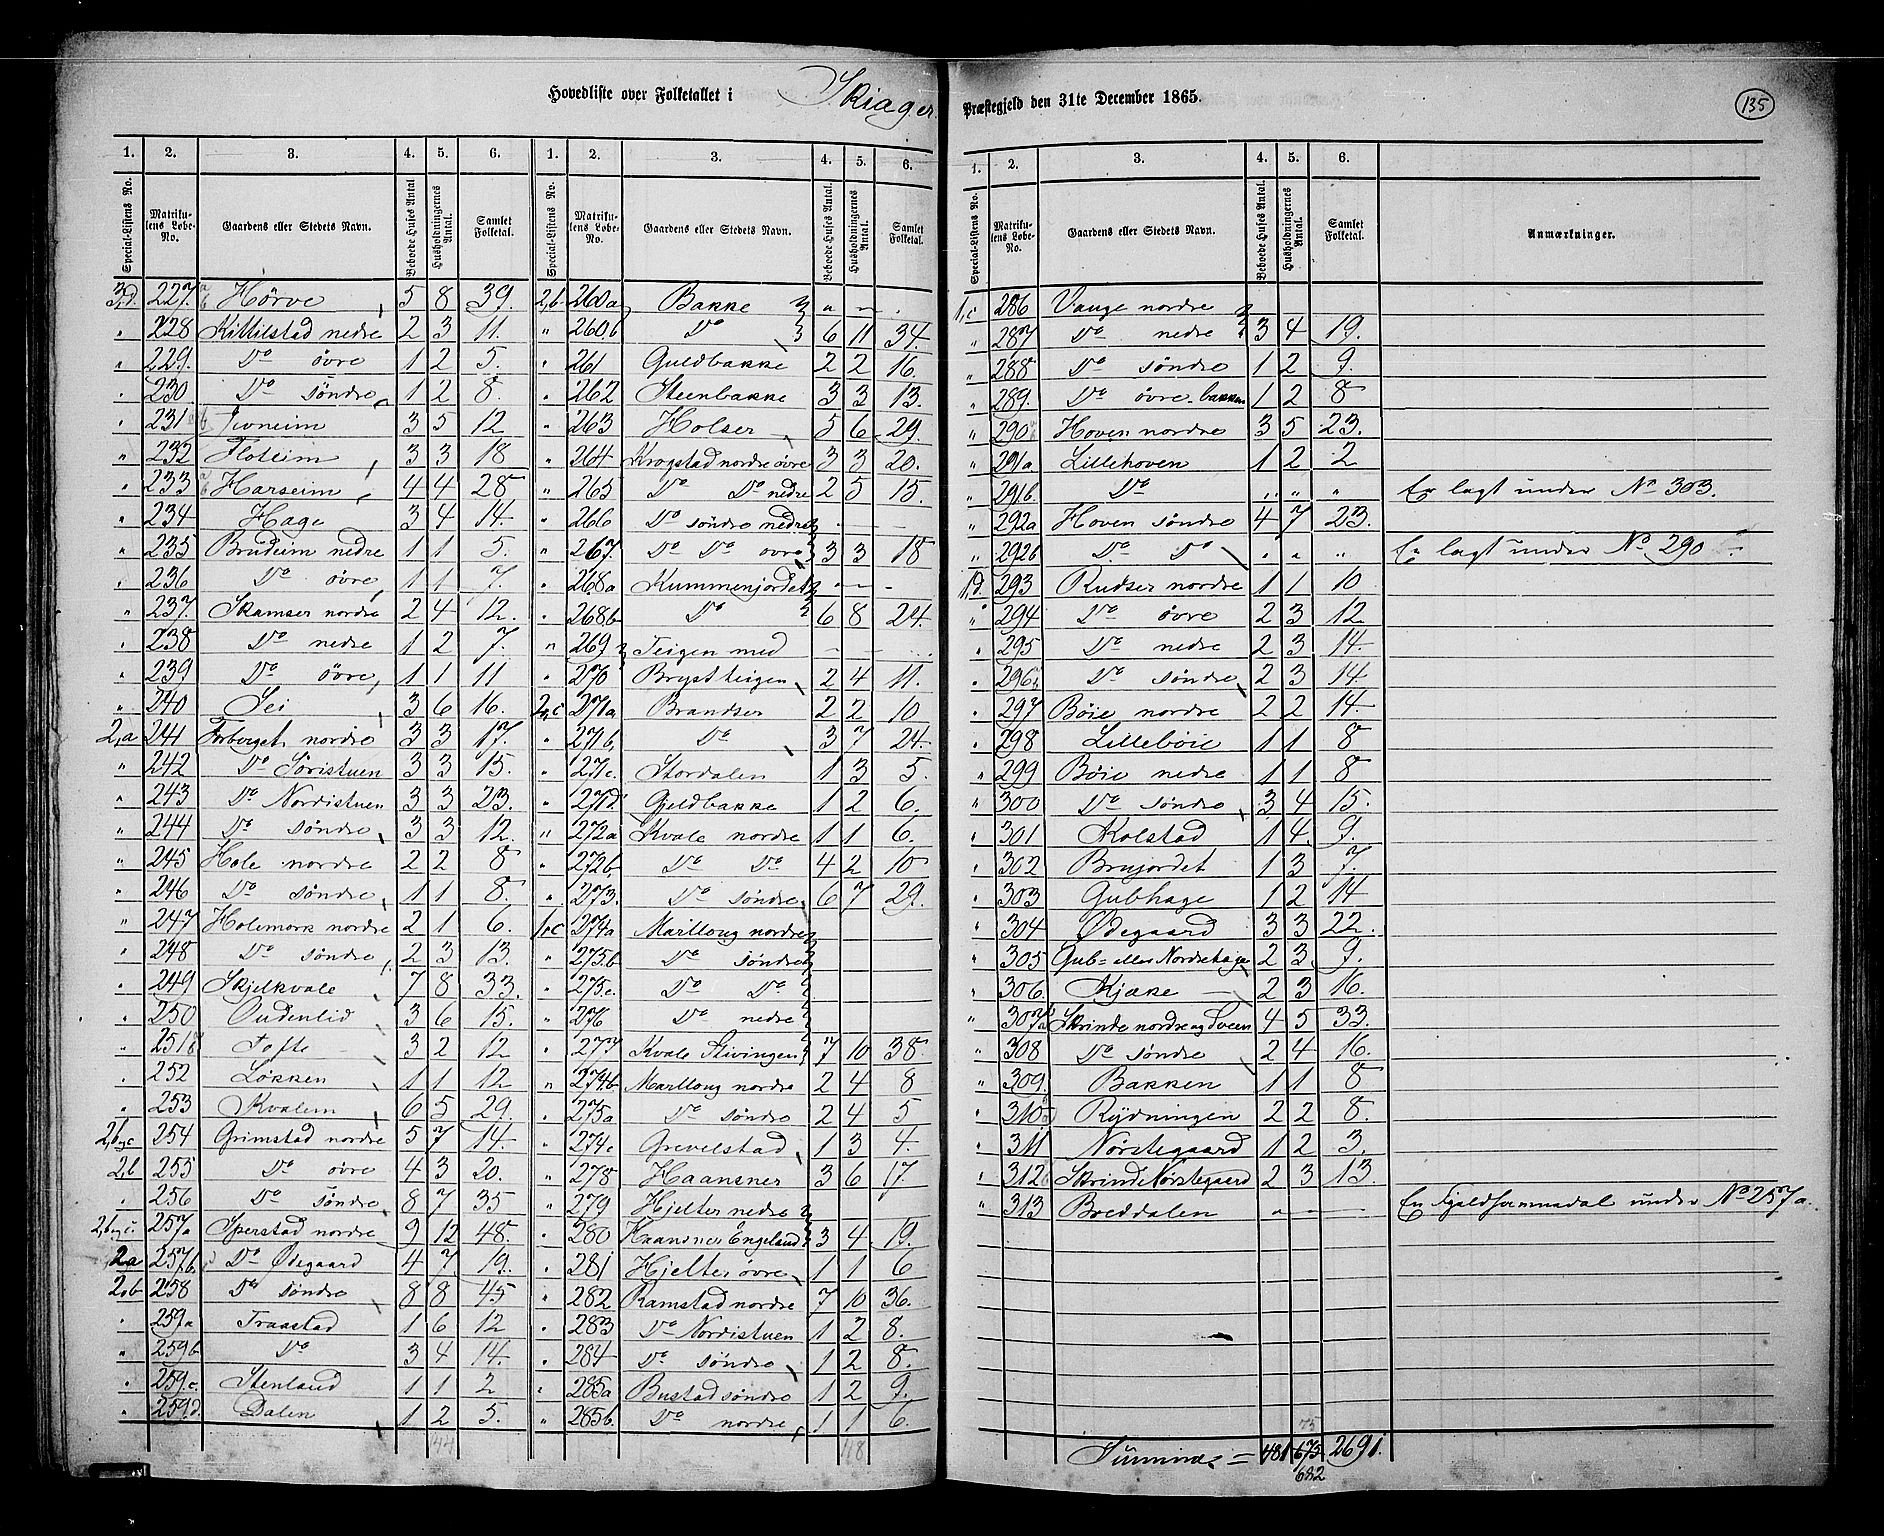 Hovedliste over Folketallet i Skiager Præstegjeld den 31te December 1865.
135
1. 2. 3. 4. 5. 6. 1. 2. 3. 4. 5. 6.
Special-Listens No. Matrikulens Løbe-No. Gaardens eller Stedets Navn. Beboede Huses Antal Husholdningernes Antal. Samlet Folketal. Special-Listens No. Matrikulens Løbe-No. Gaardens eller Stedets Navn. Beboede Huses Antal. Husholdningernes Antal. Samlet Folketal.
3,d. 227. Hörve 5 8 39.
" 228 Kittilstad nedre 2 3 11.
" 229. Do övre 1 2 5.
" 230 Do söndre 1 2 8.
" 231 3 5 12
" 232 Floteim 3 3 18
" 233 Harseim 4 4 28
" 234 Hage 3 4 14.
" 235 Brudeim nedre 1 1 5.
" 236 Do övre 1 1 7.
" 237. Skamser nordre 2 4 12.
" 238 Do nedre 1 2 7.
" 239 Do övre 1 1 11
" 240 Sei 3 6 16.
2,a 241 Forberget nordre 3 3 17.
" 242 Do Söristuen 3 3 15.
" 243 Do Nordistuen 3 3 23.
" 244 Do söndre 3 3 12.
" 245 Hole nordre 2 2 8
" 246 Do söndre 1 1 8.
" 247 Holemork nordre 2 1 6.
" 248 Do söndre 2 3 13.
" 249 Skjelkvale 7 8 33.
" 250 Oudenlid 3 6 15.
" 251 Tofte 3 2 12
" 252 Løkken 1 1 12
" 253 Kvalem 6 5 29.
2,b og c 254 Grimstad nordre 5 7 14.
2,b 255 Do övre 4 3 20.
" 256 Do söndre 8 7 35
2,b og c. 257a Sperstad nordre 9 12 48.
2a 257b Do Ødegaard 4 7 19.
2,b 258 Do söndre 8 8 45
" 259a Traastad 1 6 12
" 259b Do 3 4 14.
" 259.c. Stenland 1 1 2
" 259d. Dalen 1 2 5.
144
2,b 260a Bakke " — .
" 260b Do 6 11 34.
" 261 Guldbakke 2 2 16.
" 262 Steenbakke 3 3 13.
" 263 Holser 5 6 29.
" 264 Krogstad nordre övre 3 3 20.
" 265 Do Do nedre 2 5 15.
" 266 Do söndre nedre
" 267. Do Do övre 3 3 18
" 268a Kummenjordet — —
" 268b Do 6 8 24.
" 269 Teigen med — —
" 270 Brystteigen 2 4 11.
2,c 271a Brandser 2 2 10
" 271b Do 3 7 24.
" 271c. Stordalen 1 3 5.
" 271d Geldbakke 1 2 6.
" 272a Kvale nordre 1 1 6.
" 272b Do Do 4 2 10
" 273. Do söndre 6 7 29.
1,c 274a Marlloug nordre
" 275.b Do söndre
" 275.c. Do Do
" 276 Do nedre
" 277 Kvale Stivingen 7 10 38.
" 274b Marlloug nordre 2 4 8
" 275a Do söndre 2 4 5
" 274c Grevelstad 1 3 4.
" 278 Haansner 3 6 17.
" 279 Hjelter nedre
" 280 Haansner Engeland 3 4 19.
" 281 Hjelter övre 1 1 6
" 282 Ramstad nordre 7 10 36.
" 283 Do Nordistuen 1 2 8.
" 284 Do söndre 1 2 8.
" 285a Bustad söndre 1 2 9.
" 285b. Do nordre 1 1 6.
118
1. 2. 3. 4. 5. 6.
Special-Listens No. Matrikulens Løbe-No. Gaardens eller Stedets Navn. Beboede Huses Antal. Husholdningernes Antal. Samlet Folketal. Anmærkninger.
1,c 286 Vange nordre
" 287 Do nedre 3 4 19.
" 288 Do söndre 1 2 9.
" 289. Do övre bakken 1 2 8
" 290 Hoven nordre 3 5 23.
" 291a Lillehoven 1 2 2
" 291b. Do " " " Er lagt under No 303.
" 292a Hoven söndre 4 7 23.
" 292b Do Do " " " Er lagt under No 290
1,d. 293 Rudser nordre 1 1 10
" 294 Do övre 2 3 12
" 295 Do nedre 2 3 14.
" 296 Do söndre 2 3 14
" 297 Böie nordre 2 2 14.
" 298 Lilleböie 1 1 8
" 299 Böie nedre 1 1 8
" 300 Do söndre 3 4 15.
" 301 Kolstad 1 4 9.
" 302 Brujordet 1 3 7.
" 303 Gubhage 1 2 14
" 304 Ødegaard 3 3 22.
" 305 Gub- eller Nordrehage 2 3 9.
" 306. Kjæke 2 3 16.
" 307a Skrinde nordre og Sveen 4 5 33.
" 308 Do söndre 2 4 16.
" 309. Bakken 1 1 8
" 310 Rydningen 2 2 8.
" 311 Nörstegaard 1 2 3.
" 312 Skrinde Nörstegaard 2 3 13.
" 313 Breddalen " — — En Fjeldhavnedal under No 257a.
75
Summa = 481 675 2691.
682